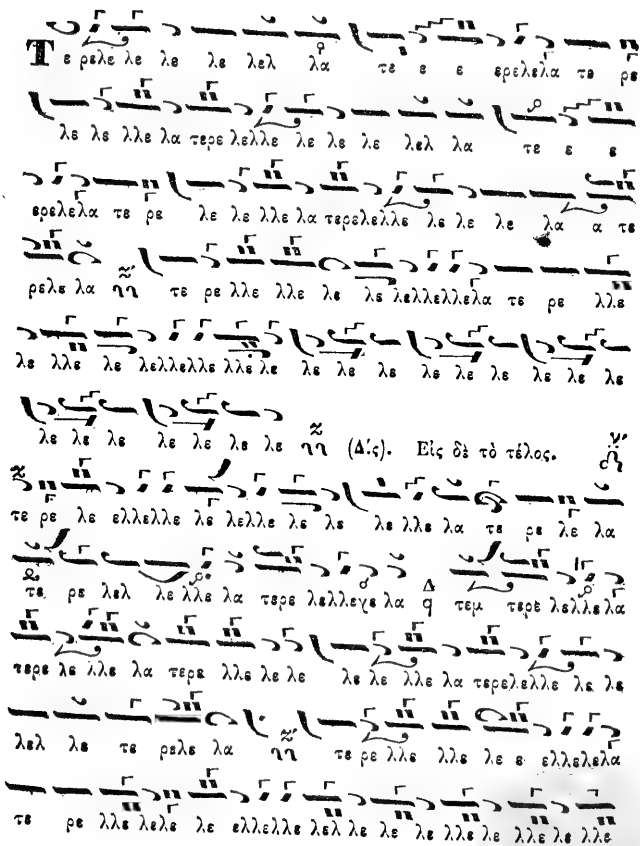 Τε ρελε λε λε λε λελ λα τε ε ε ερελελα τε ρε
λε λε λλε λα τερε λελλε λε λε λε λελ λα τε ε ε
ερελελα τε ρε λε λε λλε λα τερελελλε λε λε λε λα α τε
ρελε λα τε ρε λλε λλε λε λε λελλελλελα τε ρε λλε
λε λλε λε λελλελλε λλε λε λε λε λε λε λε λε λε λε λε
λε λε λε λε λε λε λε (Δίς). Εἰς δὲ τὸ τέλος.
τε ρε λε ελλελλε λε λελλε λε λε λε λλε λα τε ρε λε λα
τε ρε λελ λε λλε λα τερε λελλεγε λα Δ τεμ τερε λελλελα
τερε λε λλε λα τερε λλε λε λε λε λε λλε λα τερελελλε λε λε
λελ λε τε ρελε λα τε ρε λλε λλε λε ε ελλελελα
τε ρε λλε λελε λε ελλελλε λελ λε λε λε λλε λε λλε λε λλε